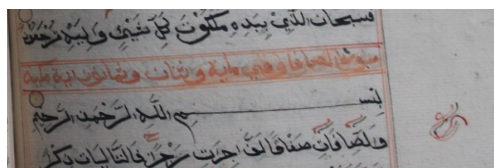 فسبحان الذي بيده ملكوت كل شيء وإليه ترجعون
سورة الصافات وهي مائة وثمانون آية مكية
بسم الله الرحمن الرحيم
والصافات صفا فالزاجرات زجرا فالتاليات ذكرا